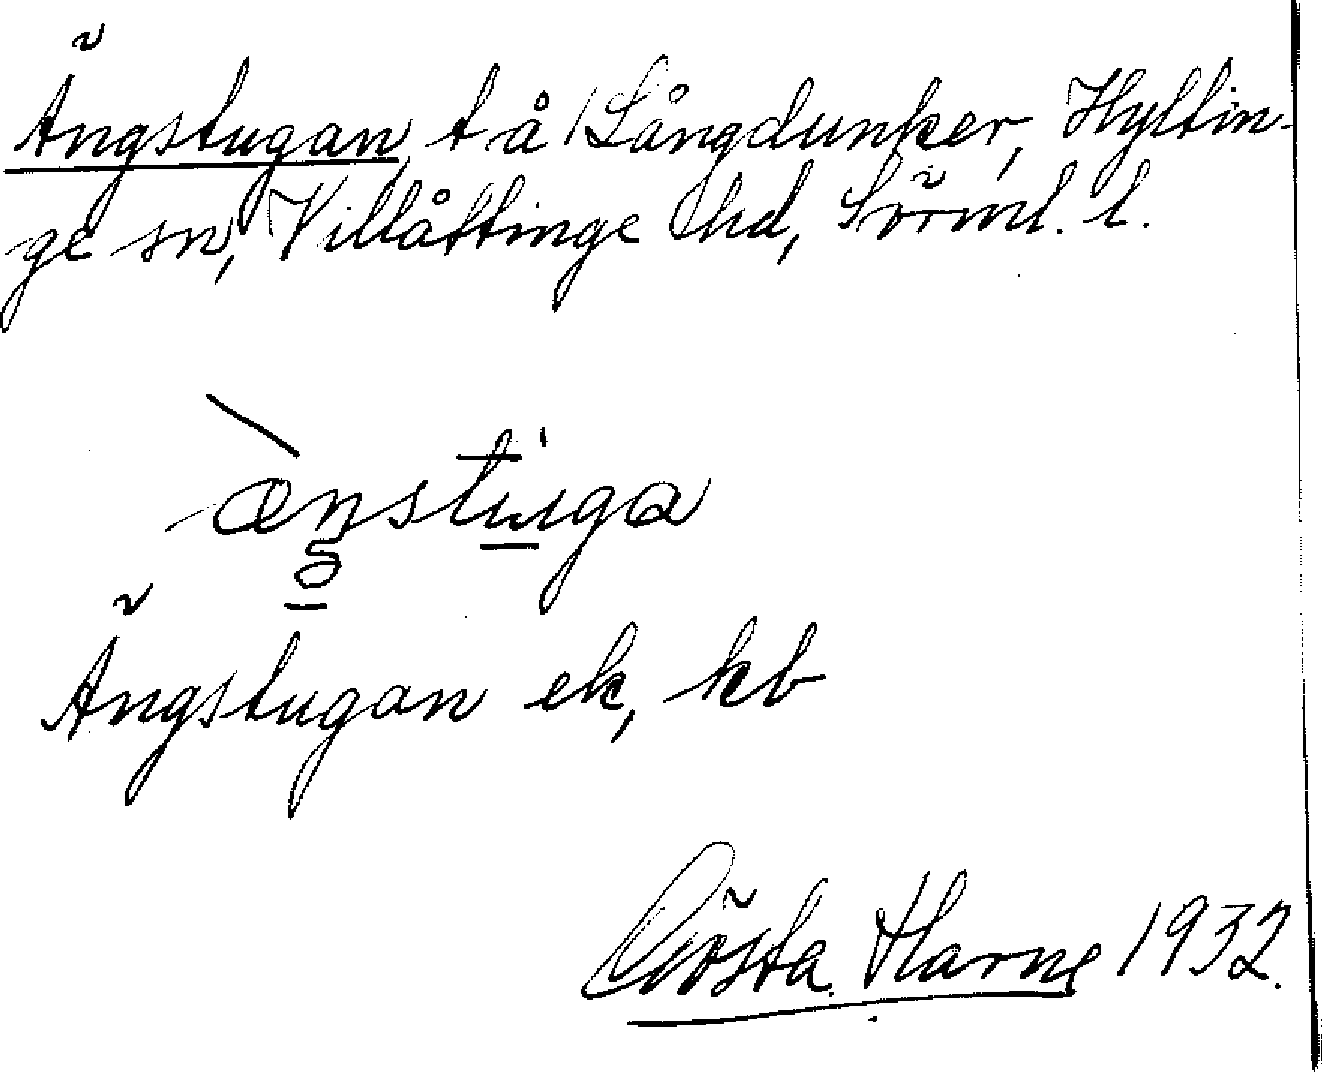 Ängstugan, t å 1 Långdunker, Hyltin-
ge sn, Villåttinge hd, Sörml. l.
æŋstuga
Ängstugan ek, kb
Gösta Harne 1932.